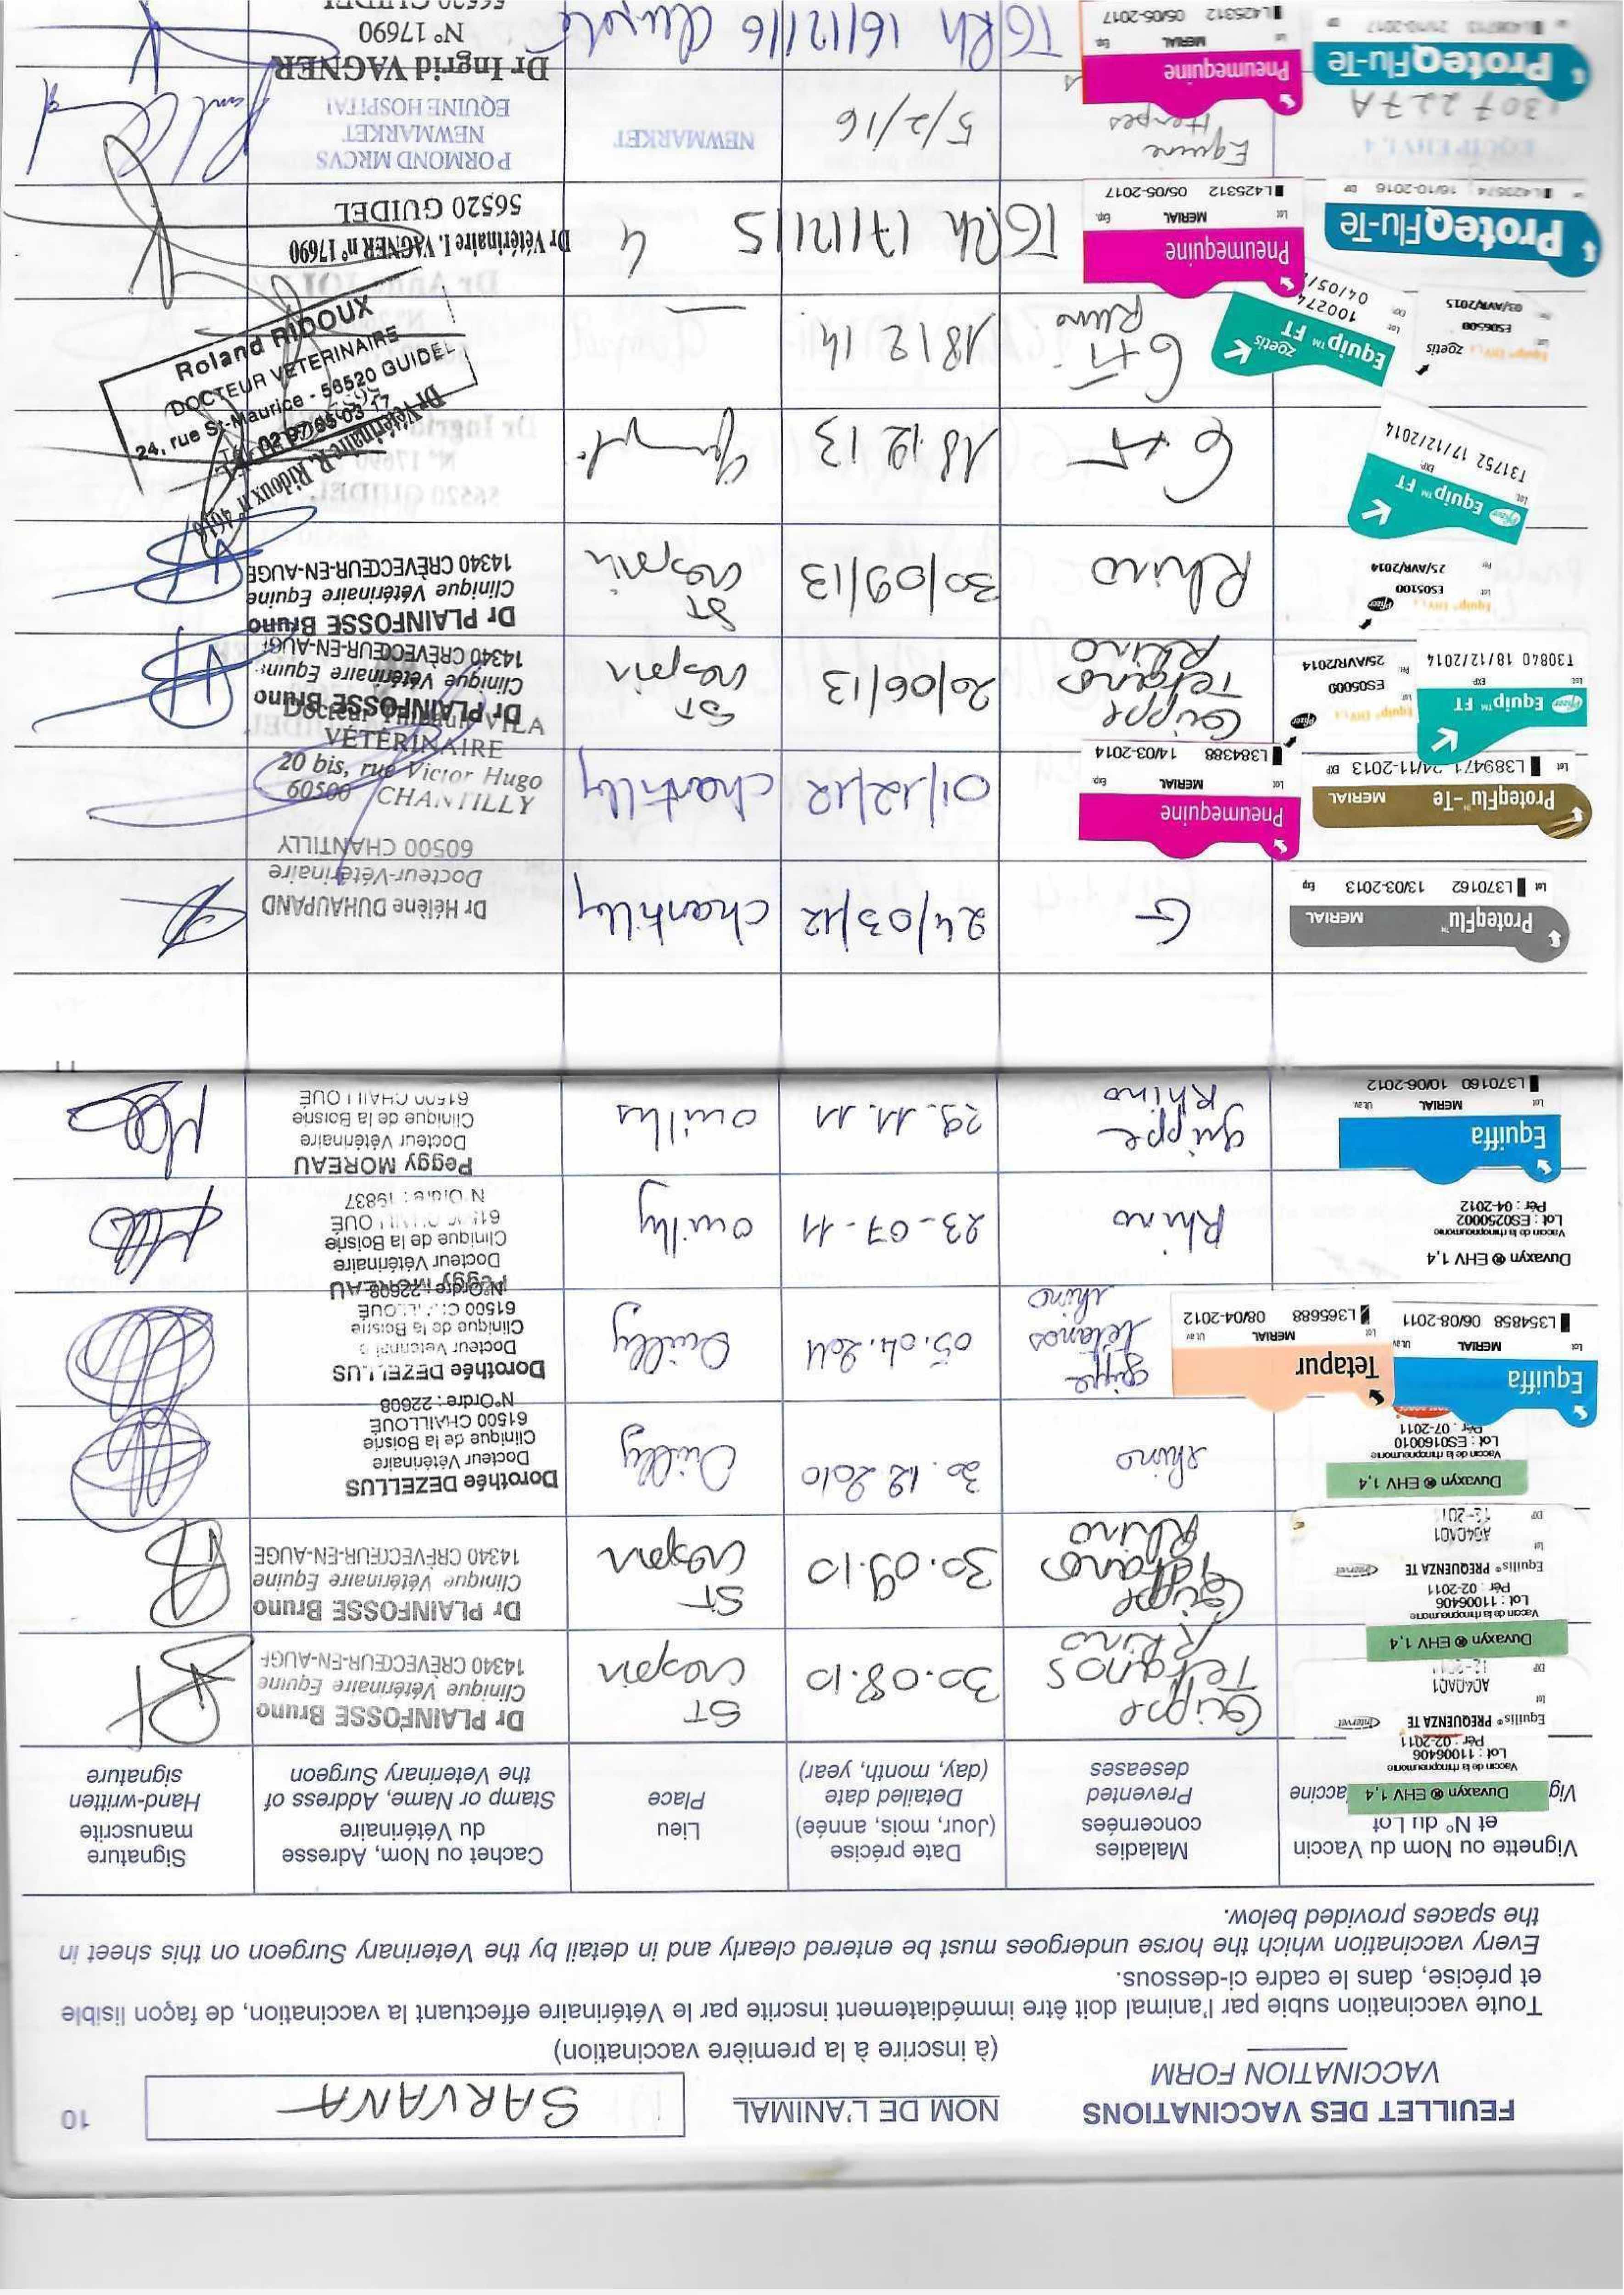 FEUILLET DES VACCINATIONS
VACCINATION FORM
NOM DE L'ANIMAL
SARVANA
10
(à inscrire à la première vaccination)
Toute vaccination subie par l'animal doit être immédiatement inscrite par le Vétérinaire effectuant la vaccination, de façon lisible
et précise, dans le cadre ci-dessous.
Every vaccination which the horse undergoes must be entered clearly and in detail by the Veterinary Surgeon on this sheet in
the spaces provided below.
Vignette ou Nom du Vaccin
et N° du Lot
Vig
accine
Maladies
concernées
Prevented
deseases
Date précise
(Jour, mois, année)
Detailed date
(day, month, year)
Lieu
Place
Cachet ou Nom, Adresse
du Vétérinaire
Stamp or Name, Address of
the Veterinary Surgeon
Signature
manuscrite
Hand-written
signature
Duvaxyn ® EHV 1,4
Vaccin de la rhinopneumonie
Lot : 11006406
Pér : 02-2011
Equilis® PREQUENZA TE
Intervet
Lot
A040A01
EXP
12-201
Grippe
Tetanos
Rhino
30.08.10
ST
Crespin
Dr PLAINFOSSE Bruno
Clinique Vétérinaire Equine
14340 CRÈVECŒUR-EN-AUGE
Duvaxyn ® EHV 1,4
Vaccin de la rhinopneumonie
Lot : 11006406
Pér : 02-2011
Equilis® PREQUENZA TE
Intervet
Lot
A040A01
EXP
12-201
Grippe
Tetanos
Rhino
30.09.10
ST
Crespin
Dr PLAINFOSSE Bruno
Clinique Vétérinaire Equine
14340 CRÈVECŒUR-EN-AUGE
Duvaxyn ® EHV 1,4
Vaccin de la rhinopneumonie
Lot : ES0160010
Pér : 07-2011
rhino
30.12.2010
Ouilly
Dorothée DEZELLUS
Docteur Vétérinaire
Clinique de la Boisrie
61500 CHAILLOUÉ
N°Ordre : 22608
Equiffa
Lot
MERIAL
Ut.av
L354858 06/08-2011
Tetapur
Lot
MERIAL
Ut.av
L365688 08/04-2012
grippe
tétanos
rhino
05.04.2011
Ouilly
Dorothée DEZELLUS
Docteur Vétérinaire
Clinique de la Boisrie
61500 CHAILLOUÉ
N°Ordre : 22608
Duvaxyn ® EHV 1,4
Vaccin de la rhinopneumonie
Lot : ES0250002
Pér : 04-2012
Rhino
23-07-11
Ouilly
Peggy MOREAU
Docteur Vétérinaire
Clinique de la Boisrie
61500 CHAILLOUÉ
N°Ordre : 19837
Equiffa
Lot
MERIAL
Ut.av.
L370160 10/06-2012
grippe
Rhino
29.11.11
Ouilly
Peggy MOREAU
Docteur Vétérinaire
Clinique de la Boisrie
61500 CHAILLOUÉ
11
ProteqFlu™
MERIAL
Lot L370162 13/03-2013 Exp
G
24/03/12
Chantilly
Dr Hélène DUHAUPAND
Docteur-Vétérinaire
60500 CHANTILLY
ProteqFlu™-Te
MERIAL
Lot L389471 24/11-2013 EXP
Pneumequine
Lot
MERIAL
Exp.
L384388 14/03-2014
01/12/12
Chantilly
Docteur Thibault VILA
VÉTÉRINAIRE
20 bis, rue Victor Hugo
60500 CHANTILLY
Equip™ FT
Lot
EXP
T30840 18/12/2014
Equip® EHV 1,4
Pfizer
Lot
ES05009
Per
25/AVR/2014
Grippe
Tetanos
Rhino
20/06/13
ST
Crespin
Dr PLAINFOSSE Bruno
Clinique Vétérinaire Equine
14340 CRÈVECŒUR-EN-AUGE
Equip® EHV 1,4
Pfizer
Lot
ES05100
Per
25/AVR/2014
Rhino
30/09/13
ST
Crespin
Dr PLAINFOSSE Bruno
Clinique Vétérinaire Equine
14340 CRÈVECŒUR-EN-AUGE
Pfizer Equip™ FT
Lot
EXP.
T31752 17/12/2014
G+T
18.12.13
Dr Vétérinaire R. Ridoux n° 4610
zoetis
Lot
ES06500
Per
03/AVR/2015
Equip™ FT
zoetis
Lot
EXP
100274
04/05/
G+T
Rhino
18 12 14
Roland RIDOUX
DOCTEUR VÉTÉRINAIRE
24, rue St-Maurice - 56520 GUIDEL
Tél. 02 97 65 03 17
ProteqFlu-Te
L423574 16/10-2016
Pneumequine
Lot
MERIAL
Exp.
L425312 05/05-2017
TGRh
17/12/15
Dr Vétérinaire I. VAGNER n° 17690
56520 GUIDEL
EQUIP EHV 1,4
1307227A
Equine
Herpes
5/2/16
NEWMARKET
P ORMOND MRCVS
NEWMARKET
EQUINE HOSPITAL
ProteqFlu-Te
21/10-2017
Pneumequine
Lot
MERIAL
Exp
L425312 05/05-2017
TGRh
16/12/16
Dr Ingrid VAGNER
N° 17690
56520 GUIDEL